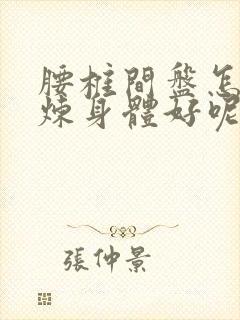 腰柱間盤怎
炼身體好呢
張仲景